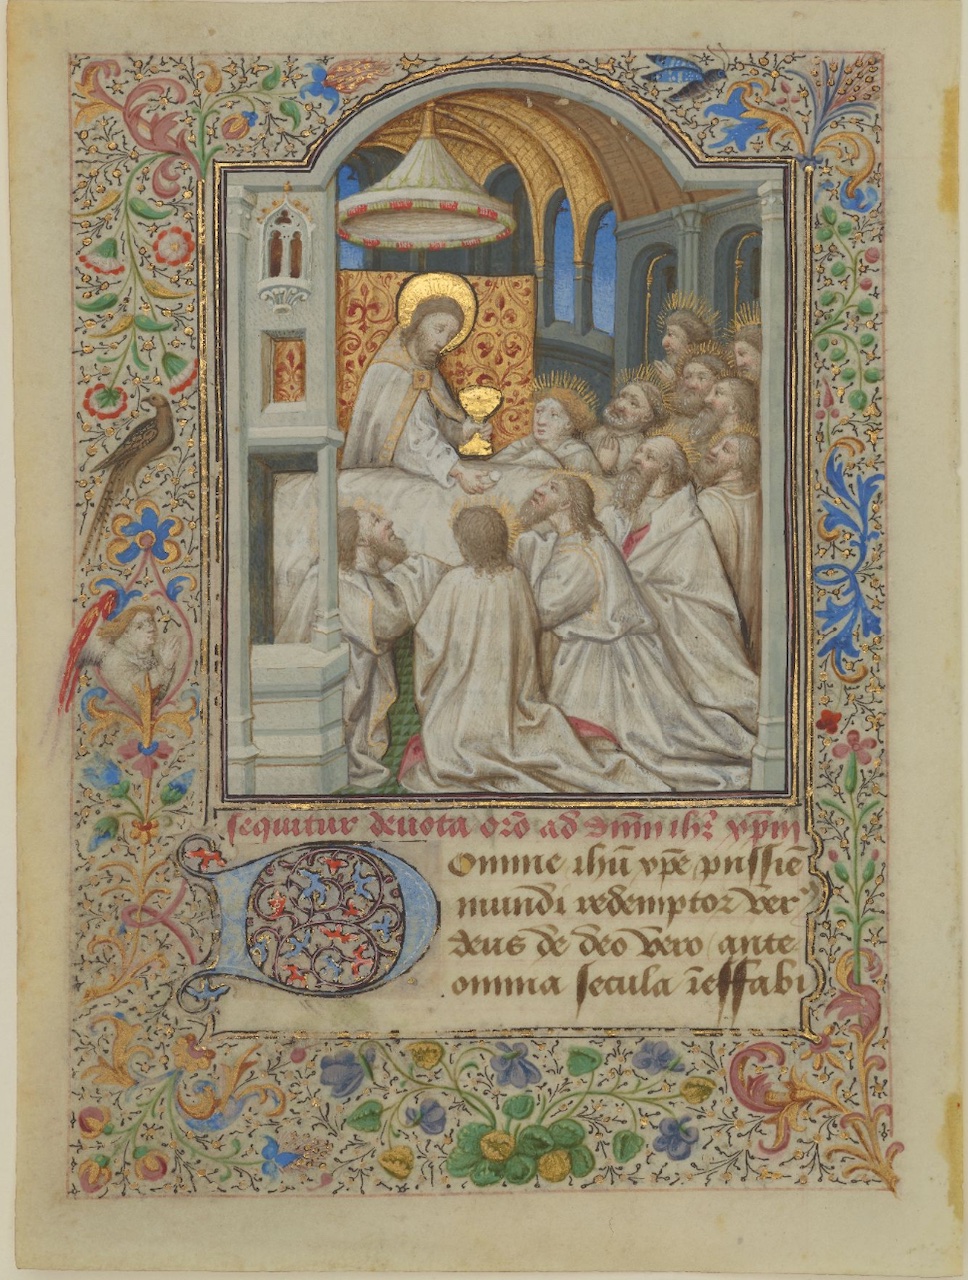 sequitur deuota orō ad dnm̄ ihm̄ xpm̄
Domine ihū xpē pijssie
mundi redemptor ver
deus de deo vero ante
omnia secula īeffabi